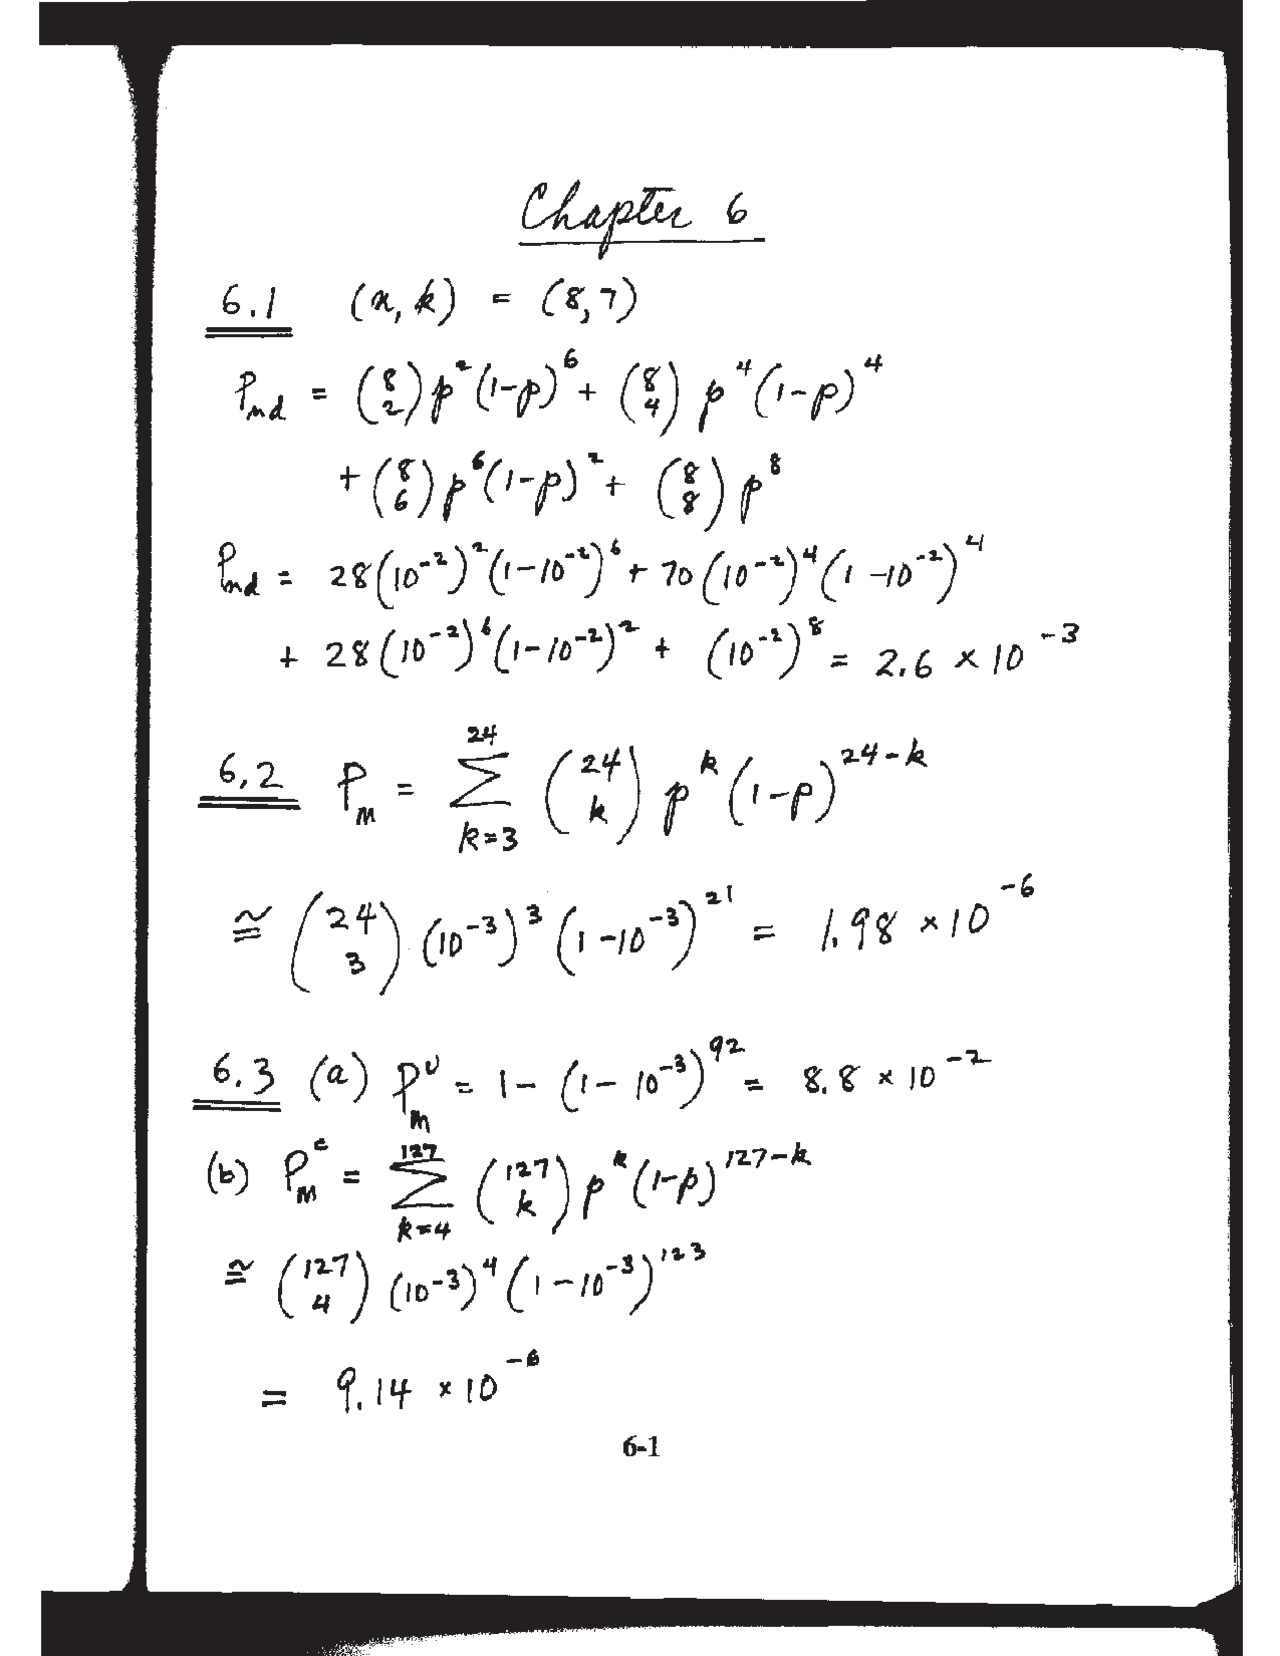 Chapter 6
6.1 (n, k) = (8, 7)
P_nd = (8 2) p^2 (1-p)^6 + (8 4) p^4 (1-p)^4
+ (8 6) p^6 (1-p)^2 + (8 8) p^8
P_nd = 28 (10^-2)^2 (1-10^-2)^6 + 70 (10^-2)^4 (1-10^-2)^4
+ 28 (10^-2)^6 (1-10^-2)^2 + (10^-2)^8 = 2.6 × 10^-3
6.2 P_M = Σ_{k=3}^{24} (24 k) p^k (1-p)^{24-k}
≅ (24 3) (10^-3)^3 (1-10^-3)^21 = 1.98 × 10^-6
6.3 (a) P_M^U = 1 - (1-10^-3)^92 = 8.8 × 10^-2
(b) P_M^c = Σ_{k=4}^{127} (127 k) p^k (1-p)^{127-k}
≅ (127 4) (10^-3)^4 (1-10^-3)^123
= 9.14 × 10^-6
6-1